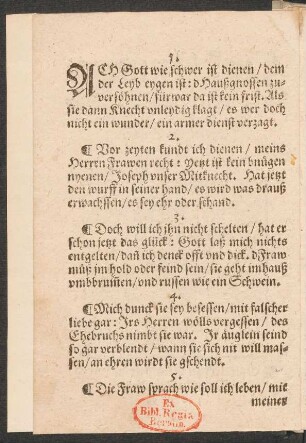 1.
ACH Gott wie schwer ist dienen / dem
der Leyb eygen ist: d Haußgnossen zu-
versöhnen / fürwar da ist kein frist. Als
sie dann Knecht vnleydig klagt / es wer doch
nicht ein wunder / ein armer dienst verzagt.
2.
¶ Vor zeyten kundt ich dienen / meins
Herrn Frawen recht: yetzt ist kein bnügen
nyenen / Joseph vnser Mitknecht. Hat jetzt
den wurff in seiner hand / es wird was drauß
erwachssen / es sey ehr oder schand.
3.
¶ Doch will ich ihn nicht schelten / hat er
schon jetzt das glück: Gott laß mich nichts
entgelten / dañ ich denck offt vnd dick. d Fraw
můß im hold oder feind sein / sie geht im hauß
vmbbrum̃len / vnd russen wie ein Schwein.
4.
¶ Mich dunck sie sey besessen / mit falscher
liebe gar: Irs Herren wölls vergessen / des
Ehebruchs nimbt sie war. Ir äuglein seind
so gar verblendt / wann sie sich nit will mas-
sen / an ehren wirdt sie gschendt.
5.
¶ Die Fraw sprach wie soll ich leben / mit
meinen
Ex
Bibl. Regia
Berolin.